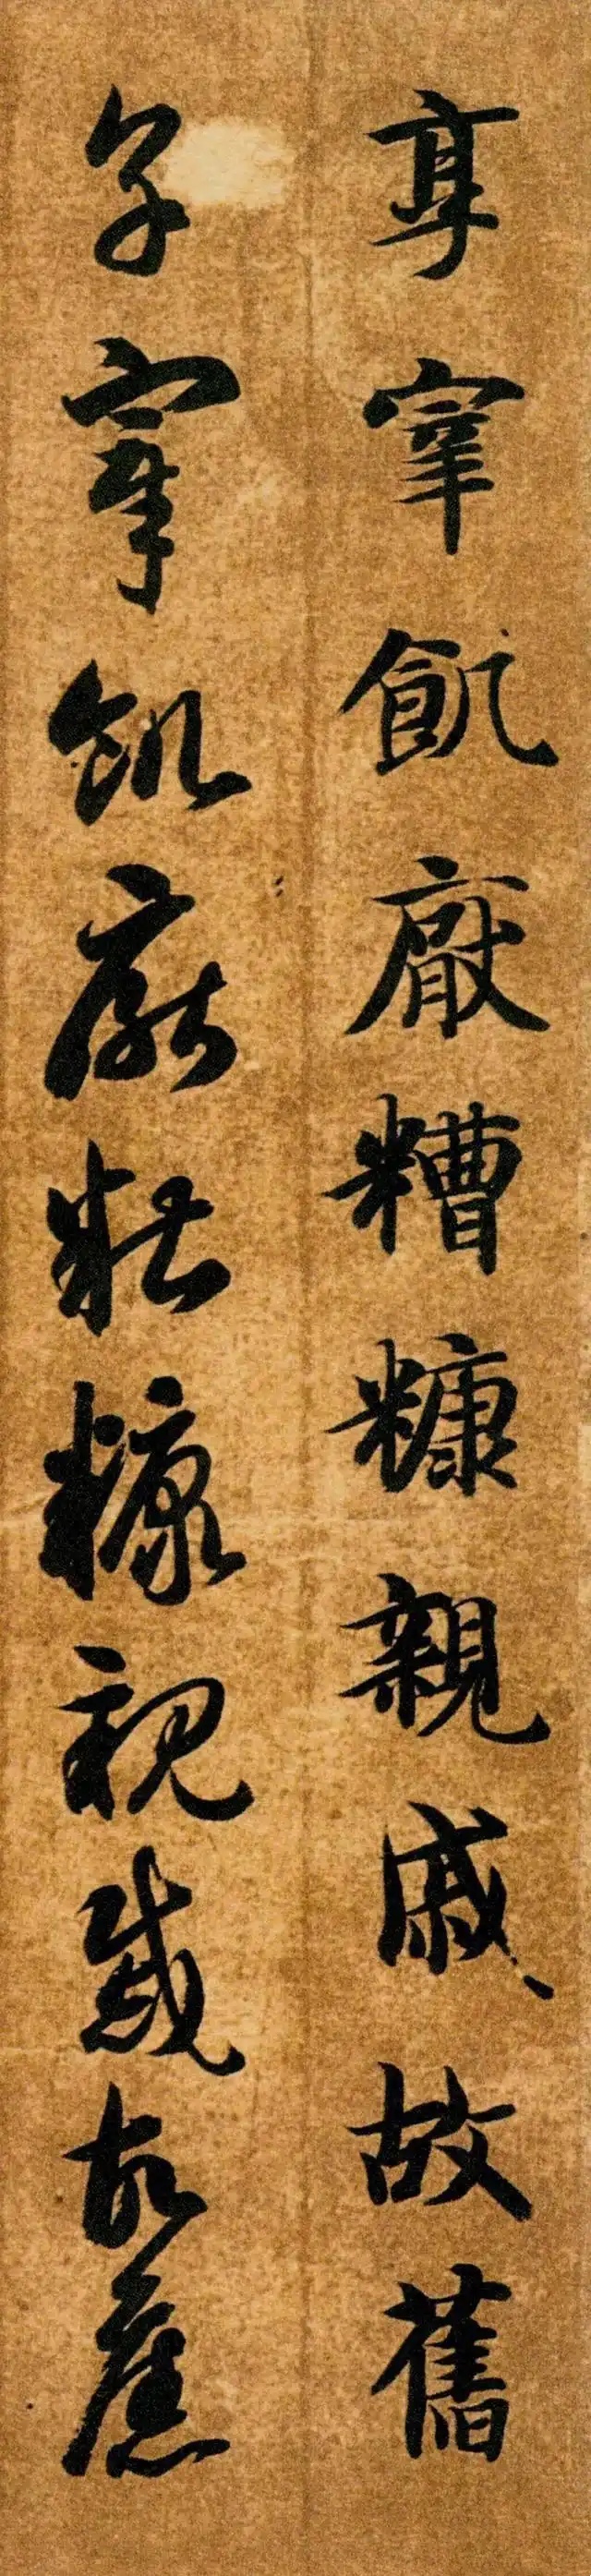 享宰飢厭糟糠親戚故舊
享宰飢厭糟糠親戚故舊